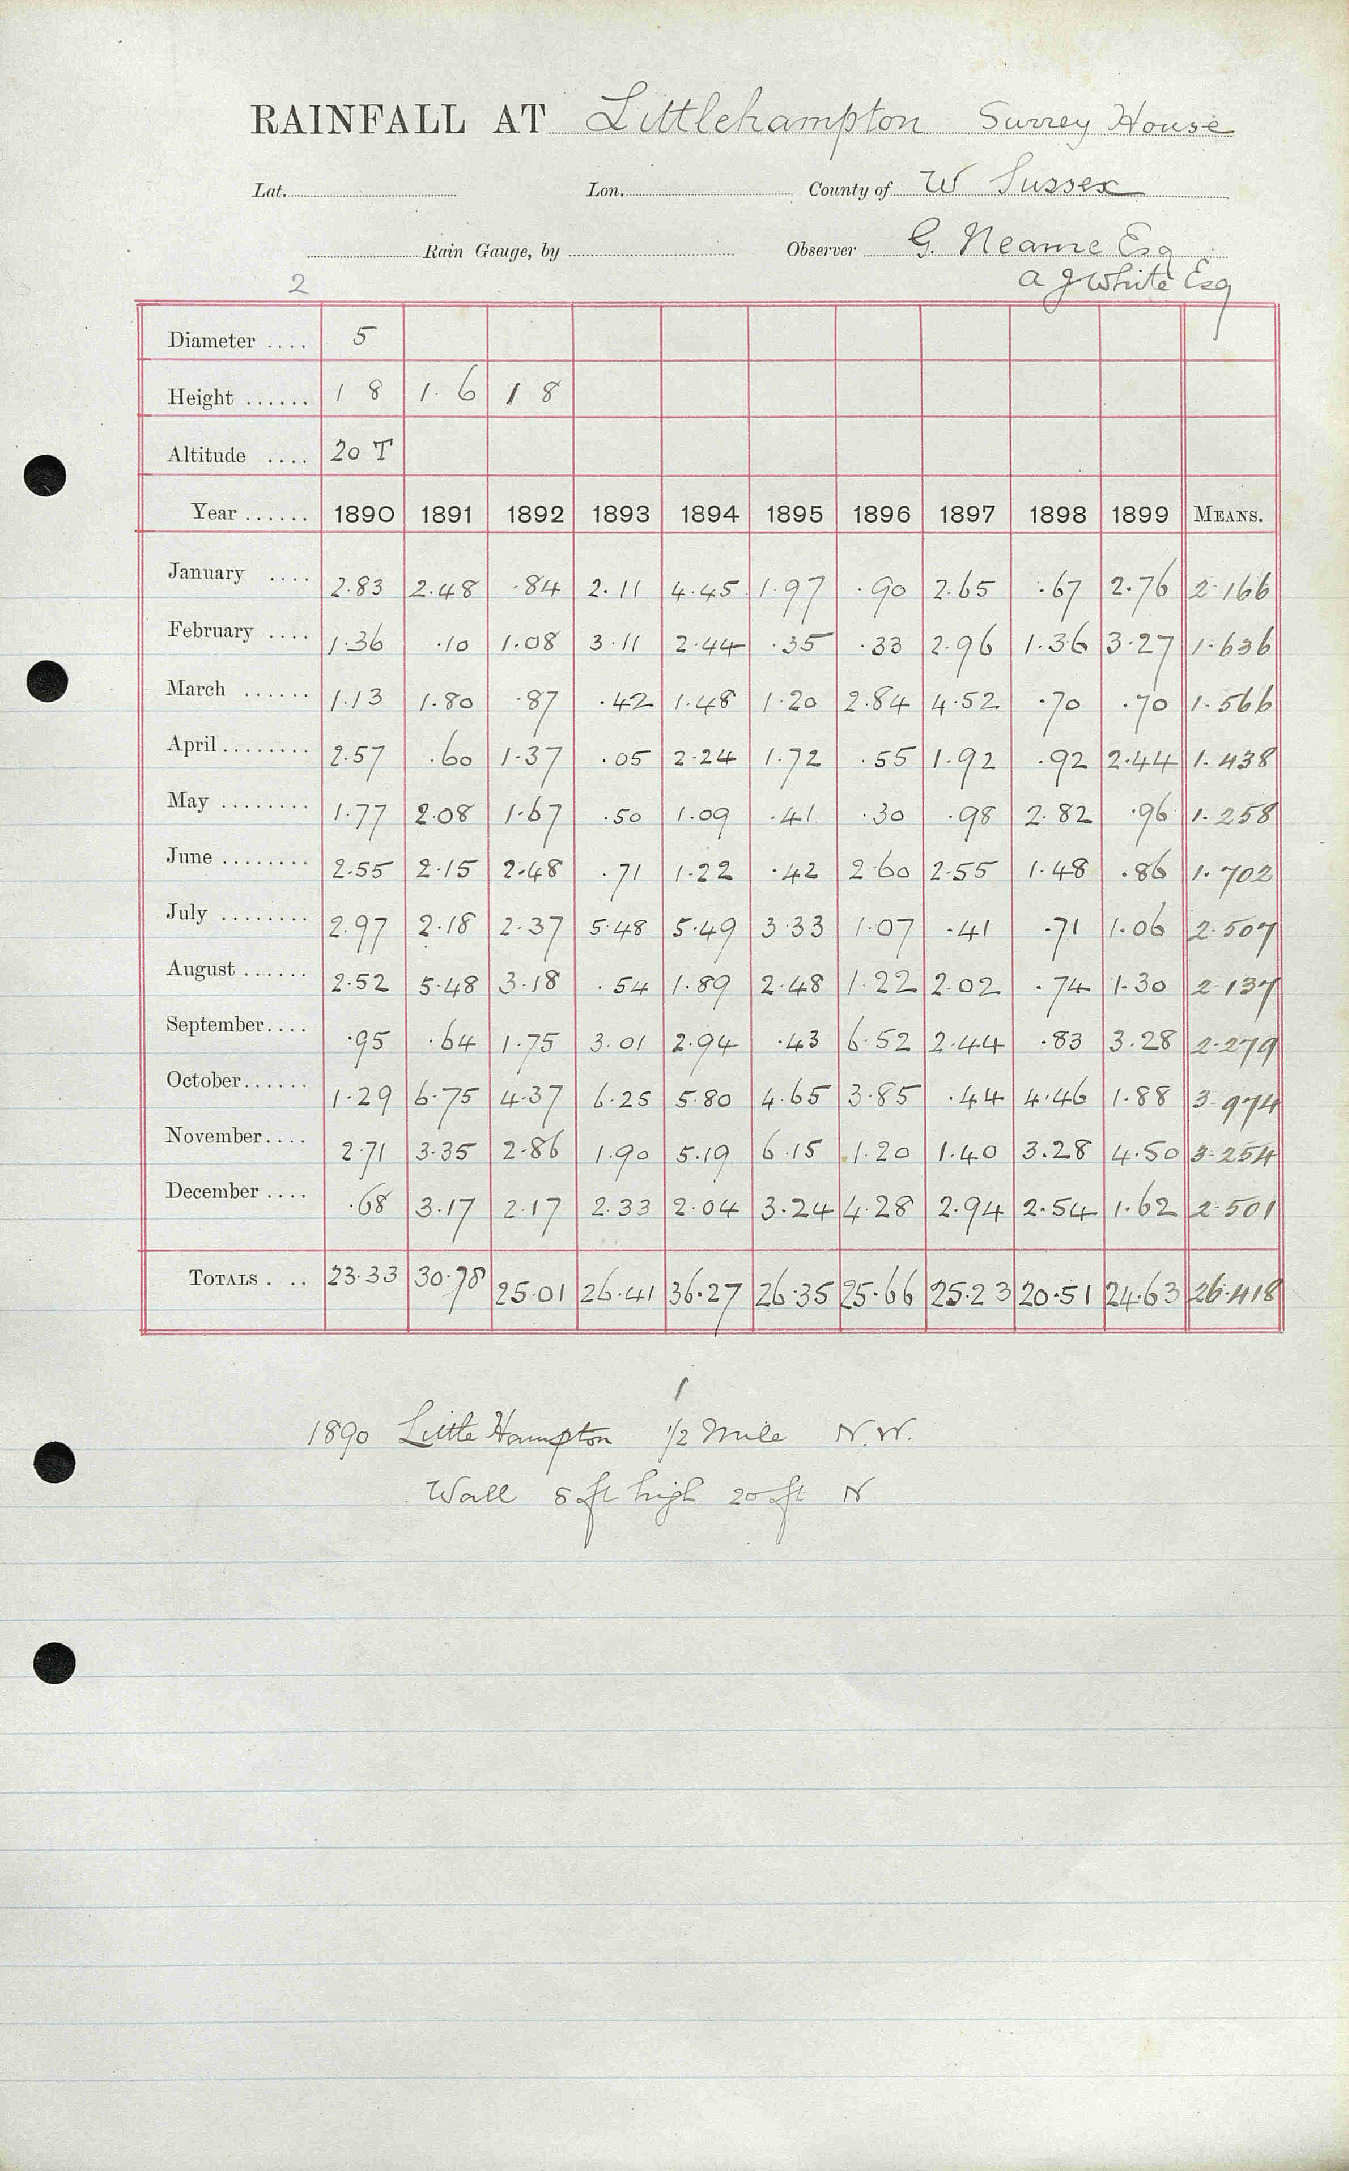 RAINFALL AT Littlehampton Surrey House
Lat. Lon. County of W Sussex
Rain Gauge, by Observer G. Neame Esq
2 A J White Esq
Diameter .... 5
Height ...... 1 8 1. 6 1 8
Altitude .... 20 T
Year ...... 1890 1891 1892 1893 1894 1895 1896 1897 1898 1899 MEANS.
January .... 2.83 2.48 .84 2.11 4.45 1.97 .90 2.65 .67 2.76 2.166
February .... 1.36 .10 1.08 3.11 2.44 .35 .33 2.96 1.36 3.27 1.636
March ...... 1.13 1.80 .87 .42 1.48 1.20 2.84 4.52 .70 .70 1.566
April ........ 2.57 .60 1.37 .05 2.24 1.72 .55 1.92 .92 2.44 1.438
May ........ 1.77 2.08 1.67 .50 1.09 .41 .30 .98 2.82 .96 1.258
June ........ 2.55 2.15 2.48 .71 1.22 .42 2.60 2.55 1.48 .86 1.702
July ........ 2.97 2.18 2.37 5.48 5.49 3.33 1.07 .41 .71 1.06 2.507
August ...... 2.52 5.48 3.18 .54 1.89 2.48 1.22 2.02 .74 1.30 2.137
September .... .95 .64 1.75 3.01 2.94 .43 6.52 2.44 .83 3.28 2.279
October ...... 1.29 6.75 4.37 6.25 5.80 4.65 3.85 .44 4.46 1.88 3.974
November .... 2.71 3.35 2.86 1.90 5.19 6.15 1.20 1.40 3.28 4.50 3.254
December .... .68 3.17 2.17 2.33 2.04 3.24 4.28 2.94 2.54 1.62 2.501
TOTALS . .. 23.33 30.78 25.01 26.41 36.27 26.35 25.66 25.23 20.51 24.63 26.418
1
1890 Little Hampton 1/2 Mile N.W.
Wall 8 ft high 20 ft N